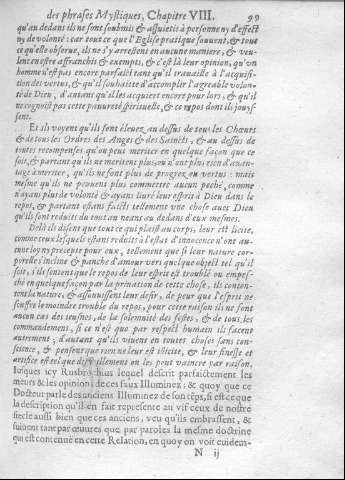 des phrases Mystiques, Chapitre VIII. 99
qu'au dedans ils ne sont soubmis & assuietis à personne ny d'effect
ny de volonté : car tout ce que l'Eglise pratique souuent, & tout
ce qu'elle obserue, ils ne s'y arrestent en aucune maniere, & veu-
lent en estre affranchis & exempts, & c'est là leur opinion, qu'vn
homme n'est pas encore parfaict tant qu'il trauaille à l'acquisi-
tion des vertus, & qu'il souhaitte d'accomplir l'agreable volon-
té de Dieu, d'autant qu'il les acquiert encore pour lors, & qu'il
ne cognoist pas cette pauureté spirituelle, & ce repos dont ils jouys-
sent.
Et ils croyent qu'ils sont éleuez au dessus de tous les Chœurs
& de tous les Ordres des Anges & des Saincts, & au dessus de
toutes recompenses qu'on peut meriter en quelque façon que ce
soit, & partant qu'ils ne meritent plus, ou n'ont plus rien d'auan-
tage à meriter, qu'ils ne font plus de progrez en vertus : mais
mesme qu'ils ne peuuent plus commettre aucun peché, comme
n'ayans plus de volonté & ayans liuré leur esprit à Dieu dans le
repos, & partant estans faicts tellement vne chose auec Dieu
qu'ils sont reduits du tout au neant au dedans d'eux mesmes.
Delà ils disent que tout ce qui plaist au corps, leur est licite,
comme ceux lesquels estans reduits à l'estat d'innocence n'ont au-
cune loy ny precepte pour eux, tellement que si leur nature cor-
porelle s'incline & panche d'amour vers quelque object tel qu'il
soit, s'ils sentent que le repos de leur esprit est troublé ou empes-
ché en quelque façon par la priuation de cette chose, ils conten-
tent la nature, & assouuissent leur desir, de peur que l'esprit ne
souffre le moindre trouble du repos, pour cette raison ils ne font
aucun cas des ieusnes, de la solemnité des festes, & de tous les
commandemens, si ce n'est que par respect humain ils facent
autrement ; d'autant qu'ils viuent en toutes choses sans con-
science, & pensent que rien ne leur est illicite, & leur finesse et
artifice est tel que difficilement on les peut vaincre par raison,
Iusques icy Rusbrochius lequel descrit parfaictement les
mœurs & les opinion de ces faux Illuminez ; & quoy que ce
Docteur parle des anciens Illuminez de son têps, si est ce que
la description qu'il en fait represente au vif ceux de nostre
siecle aussi bien que ces anciens, veu qu'ils embrassent, &
suiuent tant par œuures que par paroles la mesme doctrine
qui est contenuë en cette Relation, en quoy on voit euidem-
N ij